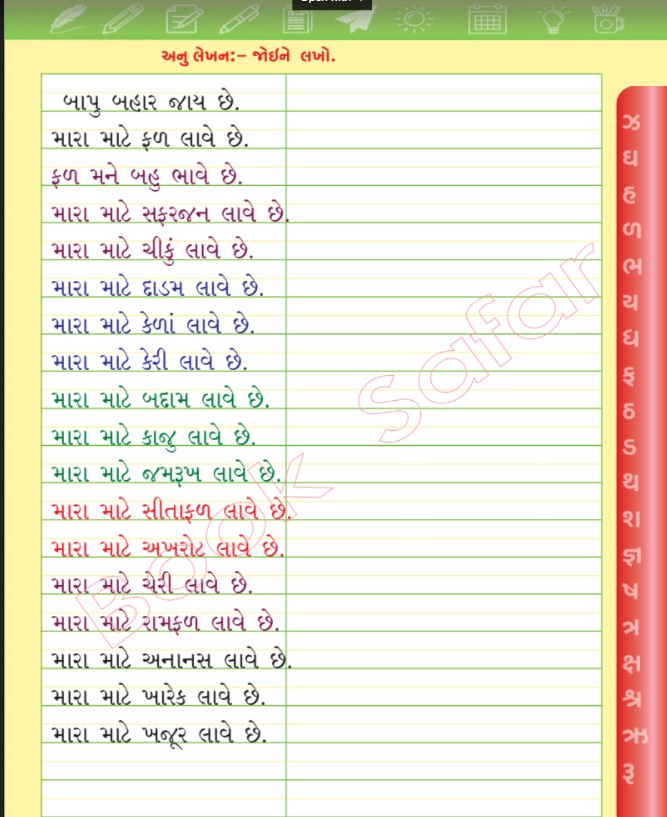 અનુ લેખન:– જોઈને લખો.
બાપુ બહાર જાય છે.
મારા માટે ફળ લાવે છે.
ફળ મને બહુ ભાવે છે.
મારા માટે સફરજન લાવે છે.
મારા માટે ચીકું લાવે છે.
મારા માટે દાડમ લાવે છે.
મારા માટે કેળાં લાવે છે.
મારા માટે કેરી લાવે છે.
મારા માટે બદામ લાવે છે.
મારા માટે કાજુ લાવે છે.
મારા માટે જમરૂખ લાવે છે.
મારા માટે સીતાફળ લાવે છે.
મારા માટે અખરોટ લાવે છે.
મારા માટે ચેરી લાવે છે.
મારા માટે રામફળ લાવે છે.
મારા માટે અનાનસ લાવે છે.
મારા માટે ખારેક લાવે છે.
મારા માટે ખજૂર લાવે છે.
Book Safar
ઝ
ઘ
હ
ળ
ભ
ચ
ધ
ફ
ઠ
ડ
થ
શ
જ્ઞ
ષ
ત્ર
ક્ષ
શ્ર
ઋ
રૂ